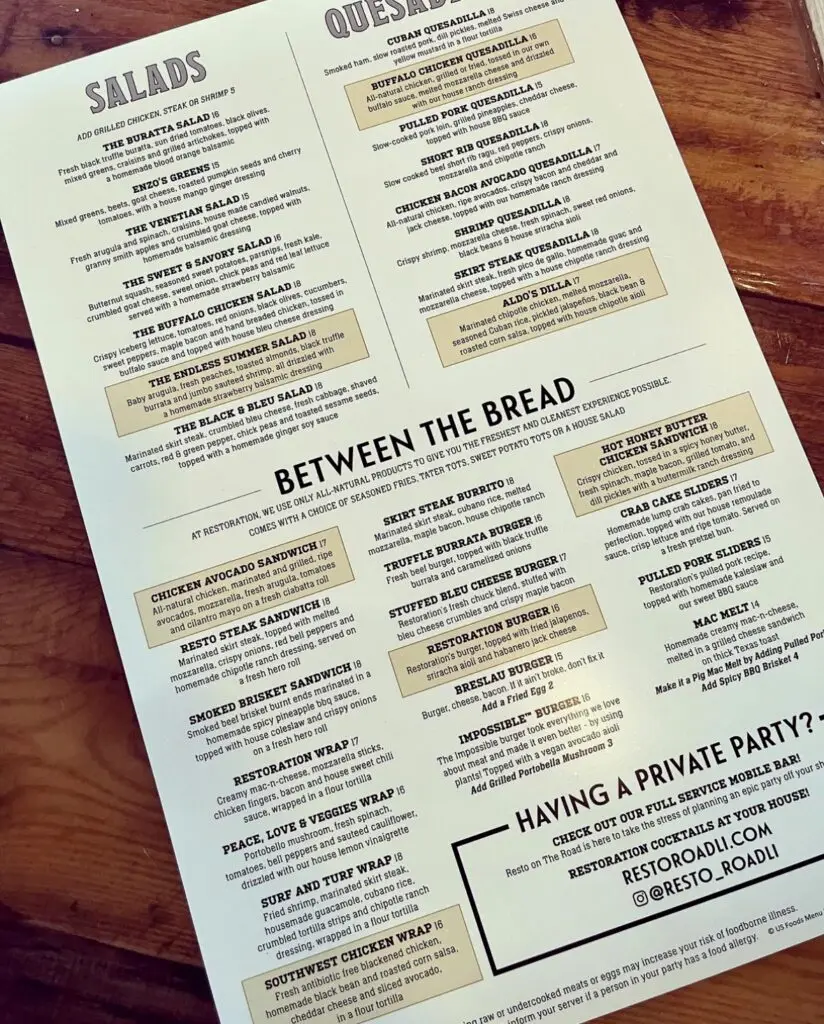 SALADS
ADD GRILLED CHICKEN, STEAK OR SHRIMP 5
THE BURATTA SALAD 16
Fresh black truffle buratta, sun dried tomatoes, black olives,
mixed greens, craisins and grilled artichokes, topped with
a homemade blood orange balsamic
ENZO'S GREENS 15
Mixed greens, beets, goat cheese, roasted pumpkin seeds and cherry
tomatoes, with a house mango ginger dressing
THE VENETIAN SALAD 15
Fresh arugula and spinach, craisins, house made candied walnuts,
granny smith apples and crumbled goat cheese, topped with
homemade balsamic dressing
THE SWEET & SAVORY SALAD 16
Butternut squash, seasoned sweet potatoes, parsnips, fresh kale,
crumbled goat cheese, sweet onion, chick peas and red leaf lettuce
served with a homemade strawberry balsamic
THE BUFFALO CHICKEN SALAD 18
Crispy iceberg lettuce, tomatoes, red onions, black olives, cucumbers,
sweet peppers, maple bacon and hand breaded chicken, tossed in
buffalo sauce and topped with house bleu cheese dressing
THE ENDLESS SUMMER SALAD 18
Baby arugula, fresh peaches, toasted almonds, black truffle
burrata and jumbo sauteed shrimp, all drizzled with
a homemade strawberry balsamic dressing
THE BLACK & BLEU SALAD 18
Marinated skirt steak, crumbled bleu cheese, fresh cabbage, shaved
carrots, red & green pepper, chick peas and toasted sesame seeds,
topped with a homemade ginger soy sauce
CUBAN QUESADILLA 18
Smoked ham, slow roasted pork, dill pickles, melted Swiss cheese and
yellow mustard in a flour tortilla
BUFFALO CHICKEN QUESADILLA 16
All-natural chicken, grilled or fried, tossed in our own
buffalo sauce, melted mozzarella cheese and drizzled
with our house ranch dressing
PULLED PORK QUESADILLA 15
Slow-cooked pork loin, grilled pineapples, cheddar cheese,
topped with house BBQ sauce
SHORT RIB QUESADILLA 18
Slow cooked beef short rib ragu, red peppers, crispy onions,
mozzarella and chipotle ranch
CHICKEN BACON AVOCADO QUESADILLA 17
All-natural chicken, ripe avocados, crispy bacon and cheddar and
jack cheese, topped with our homemade ranch dressing
SHRIMP QUESADILLA 18
Crispy shrimp, mozzarella cheese, fresh spinach, sweet red onions,
black beans & house sriracha aioli
SKIRT STEAK QUESADILLA 18
Marinated skirt steak, fresh pico de gallo, homemade guac and
mozzarella cheese, topped with a house chipotle ranch dressing
ALDO'S DILLA 17
Marinated chipotle chicken, melted mozzarella,
seasoned Cuban rice, pickled jalapeños, black bean &
roasted corn salsa, topped with chipotle aioli
BETWEEN THE BREAD
AT RESTORATION, WE USE ONLY ALL-NATURAL PRODUCTS TO GIVE YOU THE FRESHEST AND CLEANEST EXPERIENCE POSSIBLE.
COMES WITH A CHOICE OF SEASONED FRIES, TATER TOTS, SWEET POTATO TOTS OR A HOUSE SALAD
CHICKEN AVOCADO SANDWICH 17
All-natural chicken, marinated and grilled, ripe
avocados, mozzarella, fresh arugula, tomatoes
and cilantro mayo on a fresh ciabatta roll
RESTO STEAK SANDWICH 18
Marinated skirt steak, topped with melted
mozzarella, crispy onions, red bell peppers and
homemade chipotle ranch dressing, served on
a fresh hero roll
SMOKED BRISKET SANDWICH 18
Smoked beef brisket burnt ends marinated in a
homemade spicy pineapple bbq sauce,
topped with house coleslaw and crispy onions
on a fresh hero roll
RESTORATION WRAP 17
Creamy mac-n-cheese, mozzarella sticks,
chicken fingers, bacon and house sweet chili
sauce, wrapped in a flour tortilla
PEACE, LOVE & VEGGIES WRAP 16
Portobello mushroom, fresh spinach,
tomatoes, bell peppers and sauteed cauliflower,
drizzled with our house lemon vinaigrette
SURF AND TURF WRAP 18
Fried shrimp, marinated skirt steak,
housemade guacamole, cubano rice,
crumbled tortilla strips and chipotle ranch
dressing, wrapped in a flour tortilla
SOUTHWEST CHICKEN WRAP 16
Fresh antibiotic free blackened chicken,
homemade black bean and roasted corn salsa,
cheddar cheese and sliced avocado,
in a flour tortilla
SKIRT STEAK BURRITO 18
Marinated skirt steak, cubano rice, melted
mozzarella, maple bacon, house chipotle ranch
TRUFFLE BURRATA BURGER 16
Fresh beef burger, topped with black truffle
burrata and caramelized onions
STUFFED BLEU CHEESE BURGER 17
Restoration's fresh chuck blend, stuffed with
bleu cheese crumbles and crispy maple bacon
RESTORATION BURGER 16
Restoration's burger, topped with fried jalapenos,
sriracha aioli and habanero jack cheese
BRESLAU BURGER 15
Burger, cheese, bacon. If it ain't broke, don't fix it
Add a Fried Egg 2
IMPOSSIBLE™ BURGER 16
The Impossible burger took everything we love
about meat and made it even better - by using
plants! Topped with a vegan avocado aioli
Add Grilled Portobella Mushroom 3
HOT HONEY BUTTER
CHICKEN SANDWICH 18
Crispy chicken, tossed in a spicy honey butter,
fresh spinach, maple bacon, grilled tomato, and
dill pickles with a buttermilk ranch dressing
CRAB CAKE SLIDERS 17
Homemade lump crab cakes, pan fried to
perfection, topped with our house remoulade
sauce, crisp lettuce and ripe tomato. Served on
a fresh pretzel bun.
PULLED PORK SLIDERS 15
Restoration's pulled pork recipe,
topped with homemade kaleslaw and
our sweet BBQ sauce
MAC MELT 14
Homemade creamy mac-n-cheese,
melted in a grilled cheese sandwich
on thick Texas toast
Make it a Pig Mac Melt by Adding Pulled
Add Spicy BBQ Brisket 4
HAVING A PRIVATE PARTY?
CHECK OUT OUR FULL SERVICE MOBILE BAR!
Resto on The Road is here to take the stress of planning an epic party off your
RESTORATION COCKTAILS AT YOUR HOUSE!
RESTOROADLI.COM
@RESTO_ROADLI
raw or undercooked meats or eggs may increase your risk of foodborne illness.
inform your server if a person in your party has a food allergy.
© US Foods Menu